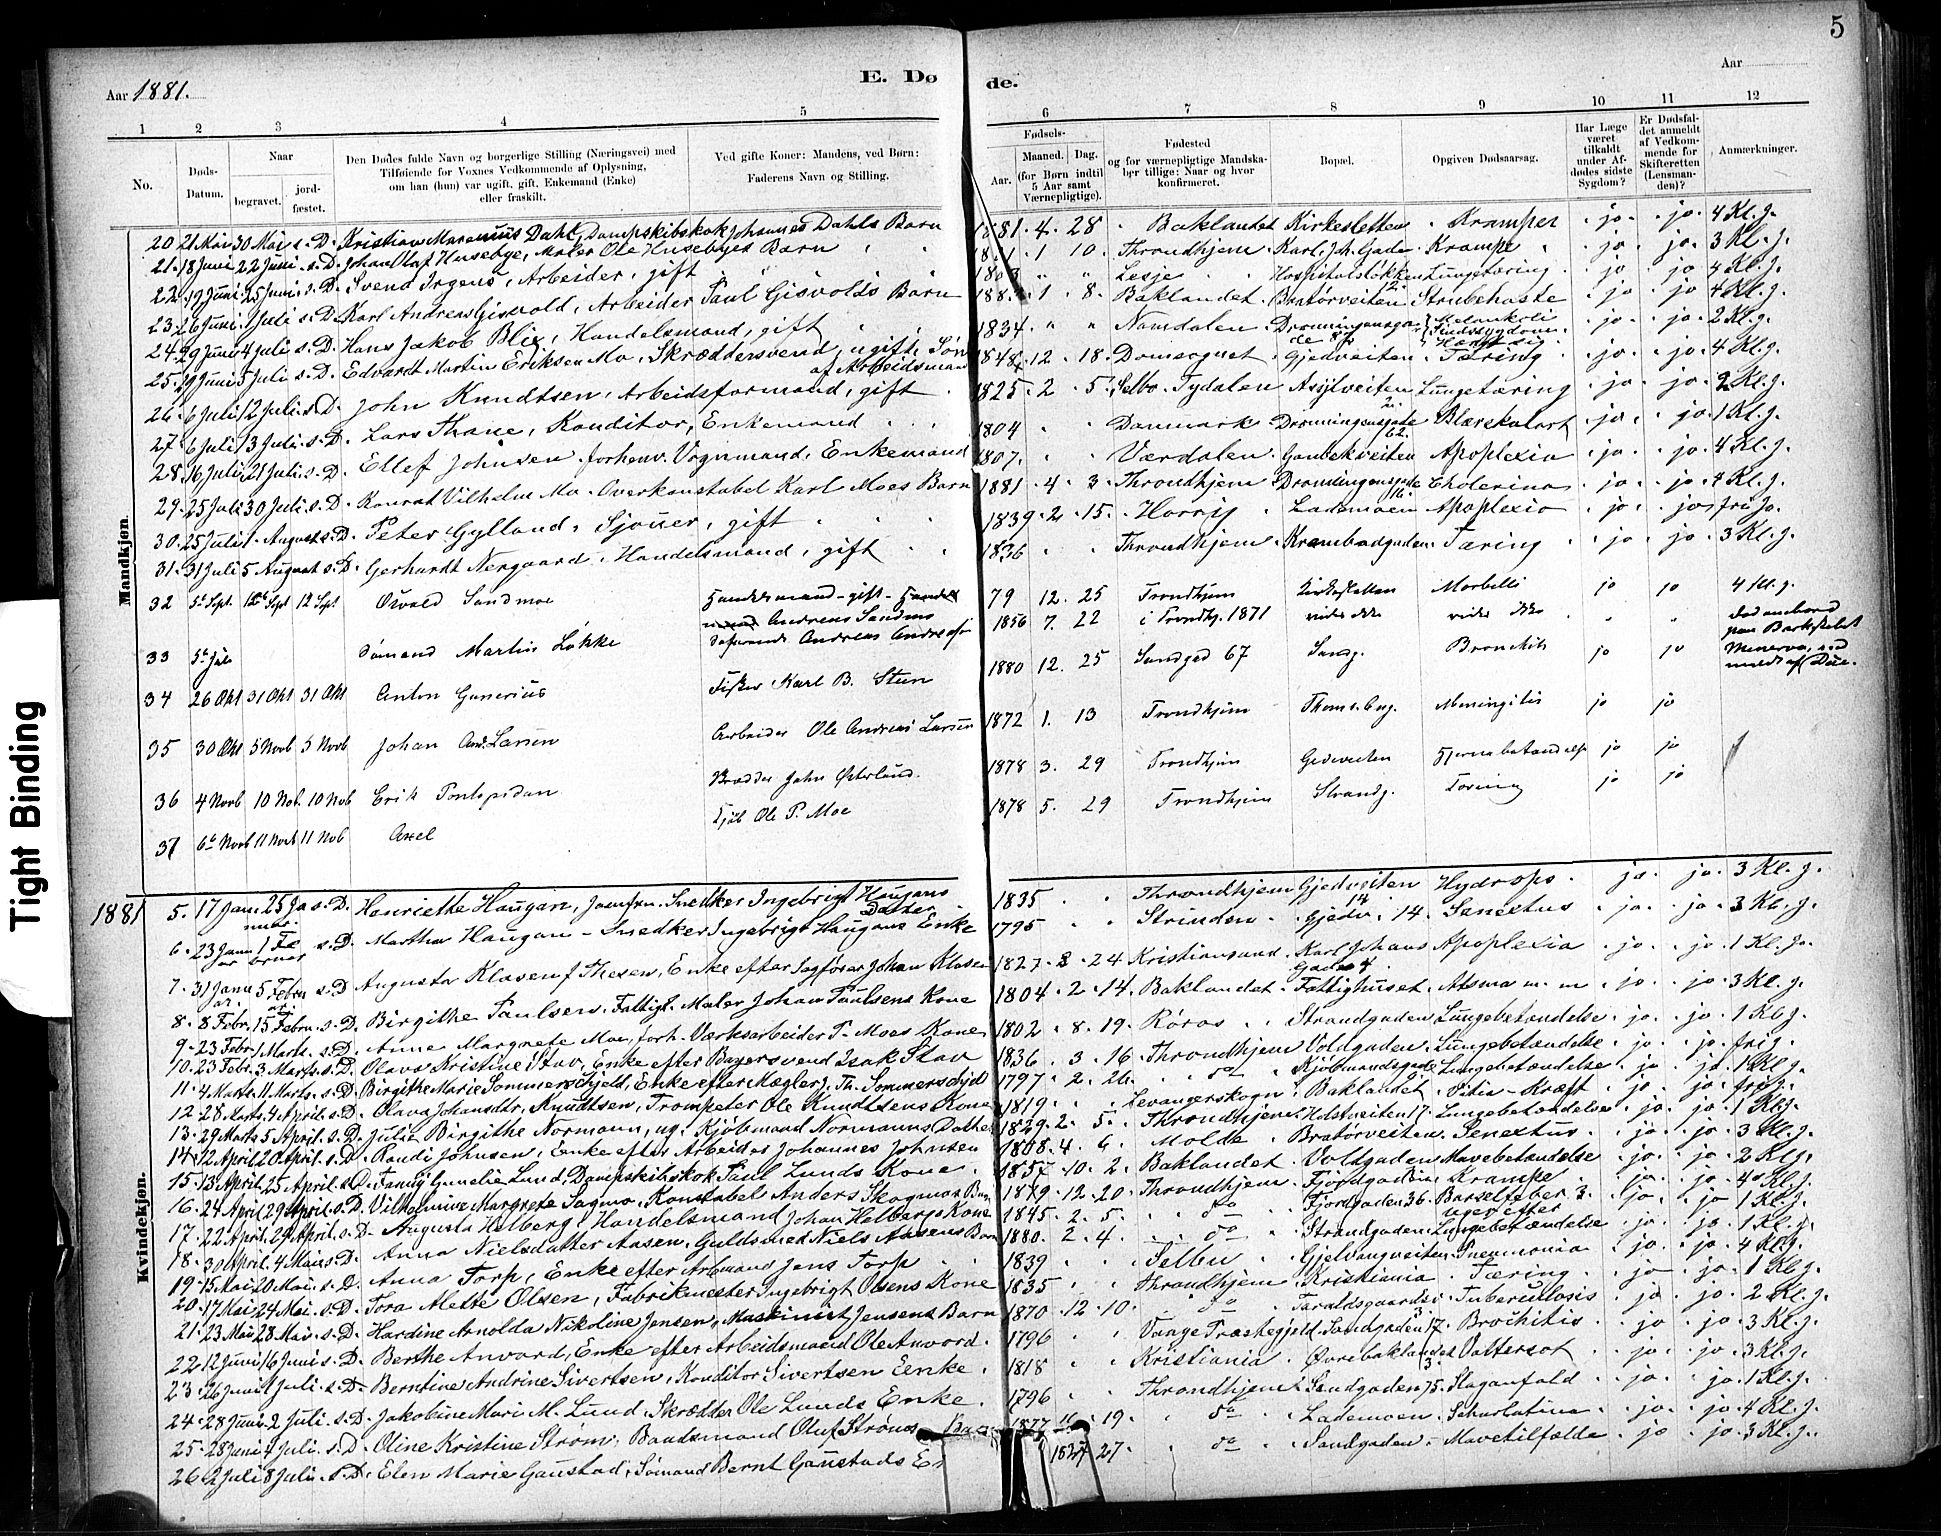 5
Aar 1881.
E. Dø de.
Aar
1 2 3 4 5 6 7 8 9 10 11 12
No.
Døds-Datum.
Naar
begravet.
jordfæstet.
Den Dødes fulde Navn og borgerlige Stilling (Næringsvei) med
Tilføiende for Voxnes Vedkommende af Oplysning,
om han (hun) var ugift, gift, Enkemand (Enke)
eller fraskilt.
Ved gifte Koner: Mandens, ved Børn:
Faderens Navn og Stilling.
Fødsels-
Aar.
Maaned. Dag.
(for Børn indtil
5 Aar samt
Værnepligtige).
Fødested
og for værnepligtige Mandska-
ber tillige: Naar og hvor
konfirmeret.
Bopæl.
Opgiven Dødsaarsag.
Har Læge
været
tilkaldt
under Af-
dødes sidste
Sygdom?
Er Dødsfal-
det anmeldt
af Vedkom-
mende for
Skifteretten
(Lensman-
den)?
Anmærkninger.
Mandkjøn.
20 21 Mai 30 Mai s. D. Kristian Marenius Dahl, Dampskibskok Johannes Dahls Barn 1881. 4. 28 Baklandet Kirkesletten Kramper jo. jo. 4 Kl. g.
21. 18 Juni 22 Juni s. D. Johan Olaf Husebye, Maler Ole Husebyes Barn 1 10. Throndhjem Karl J. h. Gade Krampe jo jo. 3 Kl. g.
22. 19 Juni 25 Juni s. D. Svend Irgens, Arbeider, gift Lesje Hospitalsløkken Lungetæring jo jo 4 Kl. g.
23. 26 Juni 1 Juli s. D. Karl Andreas Gisvold, Arbeider Paul Gisvolds Barn 1. 8. Baklandet Bratørveiten 12. Strubehoste jo jo 4 Kl. g.
24. 29 Juni 4 Juli s. D. Hans Jakob Blix, Handelsmand, gift 1834 Namdalen Dronningensgade Melankoli Sindssygdom Hængt sig jo. jo. 2 Kl. g.
25. 29 Juni 5 Juli s. D. Edvardt Martin Eriksen Mo, Skræddersvend, ugift, Søn af Arbeidsmand 12. 18. Domsognet Gjedveiten Tæring jo. jo. 4 Kl. g.
26. 6 Juli 12 Juli. s. D. John Knudtsen, Arbeidsformand, gift 1825. 2. 5. Selbo. Tydalen Asylveiten 2. Lungetæring jo jo. 2 Kl. g.
27. 6 Juli 13 Juli. s. D. Lars Thane, Konditor, Enkemand 1804 Danmark Dronningensgade 62. Blærekatarh jo. jo. 1 Kl. g.
28 16 Juli 21 Juli. s. D. Ellef Johnsen forhenv. Vognmand, Enkemand 1807. Værdalen Gaubekveiten Apoplexia jo. jo. 4 Kl. g.
29. 25 Juli 30 Juli. s. D. Konrad Vilhelm Mo. Overkonstabel Karl Moes Barn 1881. 4. 3. Throndhjem Dronningensgade 16. Cholerina jo. jo. 4 Kl. g.
30. 25 Juli 1. August s. D. Peter Gylland, Sjouer, gift 1839. 2. 15. Ladomoen Apoplexio jo. jo.
31. 31 Juli 5 August s. D. Gerhardt Nergaard, Handelsmand, gift 1836 Throndhjem Krambodgaden Tæring jo jo. 3 Kl. g.
32 5te Sept. 12te Sept 12 Sept. Osvald Sandmoe Handelsmand Andreas Sandmo 79 12. 25 Trondhjem Kirkesletten Morbilli jo jo 4 Kl. g.
33 5te Juli Sømand Martin Løkke Andreas Andresen 1856 7. 22 i Trondhj. 1871 vides ikke vides ikke død ombord paa Barkskibet Minerva
34 26 Okt 31 Okt 31 Okt Anton Gunerius Fisker Karl B. Steen 1880 12. 25 Sandgad 67 Sandg. Bronchitis jo jo
35 30 Okt 5 Novb 5 Novb Johan And. Larsen Arbeider Ole Andreas Larsen 1872 1. 13 Trondhjem Meningitis jo jo
36 4 Novb 10 Nob. 10 Nob Erik Pontopidan Brædder John Østerlund. 1878 3. 29 Trondhjem Gedeveiten Hjernebetændelse jo jo
37 6te Novb 11 Novb 11 Nob Axel Ole P. Moe 1878 5. 29 Trondhjem Strandg. Tæring jo jo
Kvindekjøn.
1881 5. 17 Januar 25 Ja s. D. Henriette Haugan, Jomfru. Snedker Ingebrigt Haugans Datter 1835 Throndhjem Gjedveiten 14 Hydrops. jo. jo. 3 Kl. g.
6. 23 Januar 1 Februar s. D. Martha Haugan - Snedker Ingebrigt Haugans Enke 1795 Strinden Gjedv. 14. Senectus jo. jo. 3 Kl. g.
7. 31 Januar. 5 Febru s. D Augusta Klasen f. Thesen, Enke efter Sagfører Johan Klasen 1827. 2. 24 Kristiansund Karl Johans Gade 4. Apoplexia jo. jo. 1 Kl. g.
8. 8 Febr. 15 Febru. s. D. Birgithe Paulsen, Fattigl. Maler Johan Paulsens Kone 1804. 2. 14. Baklandet Fattighuset. Atsma m. m jo. jo. 3 Kl. g.
9. 23 Febr. 1 Marts. s. D. Anne Margrete Moe, forh. Værksarbeider P. Moes Kone 1802. 8. 19. Røros Strandgaden Lungebetændelse jo. jo. 1 Kl. g.
10. 23 Febr. 3 Marts. s. D. Olava Kristine Stav, Enke efter Bagersvend Isak Stav 1836. 3. 16. Throndhjem Voldgaden. Lungebetændelse jo. jo. frig.
11. 4 Marts. 11 Marts. s. D. Birgithe Marie Sommerschjeld, Enke efter Mægler J. Th. Sommerschjeld 1797. 2. 26. do Kjøbmandsgade Lungebetændelse jo. jo. 1 Kl. g.
12. 28 Marts. 4 April. s. D. Olava Johansdtr. Knudtsen, Trompeter Ole Knudtsens Kone 1819. Levangerskogn Baklandet Vitia - Kræft jo. jo. frig.
13. 29 Marts 5 April. s. D. Julie Birgithe Normann, ug. Kjøbmand Normanns Datter 1829. 2. 5. Throndhjem Holstveiten 17. Lungebetændelse jo. jo. 1 Kl. g.
14. 12 April 20 April. s. D. Randi Johnsen, Enke efter Arbeider Johannes Johnsen 1808. 4. 6. Molde Bratørveiten. Senectus. jo. jo. 3 Kl. g.
15. 13 April. 25 April. s. D. Fanny Gunelie Lund, Dampskibskok Paul Lunds Kone. 1857. 10. 2. Baklandet Voldgaden Mavebetændelse jo. jo. 2 Kl. g.
16. 24 April 29 April. s. D. Vilhelmine Margrete Sagmo, Konstabel Anders Skogmos 1879. 12. 20. Throndhjem Fjordgaden Krampe jo. jo. 4 Kl. g.
17. 22 April. 29 April. s. D. Augusta Helberg, Handelsmand Johan Helbergs Kone 1845. 2. 5. do Fjordgaden 36. Barselfeber 3 uger efter jo. jo 1 Kl. g.
18. 30 April. 4 Mai s. D. Anna Nielsdatter Aasen, Guldsmed Niels Aasens Barn 1880. 2. 4. do Strandgaden Lungebetændelse jo. jo. 1 Kl. g.
19. 15 Mai 20 Mai. s. D. Anna Torp, Enke efter Arbmand Jens Torp 1839 Selbu Gjelvangveiten. Pneumonia jo. jo. 4 Kl. g.
20. 17 Mai 24 Mai. s. D. Tora Mette Olsen, Fabrikmester Ingebrigt Olsens Kone 1835 Throndhjem Kristiania Tæring jo jo. 1 Kl. g.
21. 23 Mai 28 Mai. s. D. Hardine Arnolda Nikoline Jensen, Maskinist Jensens Barn 1870. 12. 10. do Taraldsgaardsv. 3. Tuberculosis jo jo. 2 Kl. g.
22. 12 Juni 16 Juni s. D. Berthe Anvord, Enke efter Arbeidsmand Ole Anvord. 1796 Vange Præstegjeld Sandgaden 17. Brochitis jo jo. 3 Kl. g.
23. 26 Juni 1 Juli. s. D. Berntine Andrine Sivertsen, Konditor Sivertsen Eenke 1818 Kristiania Øvrebaklandet 3. Vattersot jo jo. 3 Kl. g.
24. 28 Juni 2 Juli. s. D. Jakobine Mari M. Lund, Skrædder Ole Lunds Enke. 1796 Throndhjem Sandgaden 75. Slaganfald jo. jo. 1 Kl. g.
25. 28 Juni 4 Juli. s. D. Oline Kristine Strøm, Baadsmand Oluf Strøms Barn 1877 11. 19. do Lademoen Scharlatina jo. jo. 4 Kl. g.
26. 2 Juli 8 Juli. s. D. Elen Marie Gaustad, Sømand Bernt Gaustads 27. do Sandgaden Mavetilfælde jo jo. 3 Kl. g.
Tight Binding